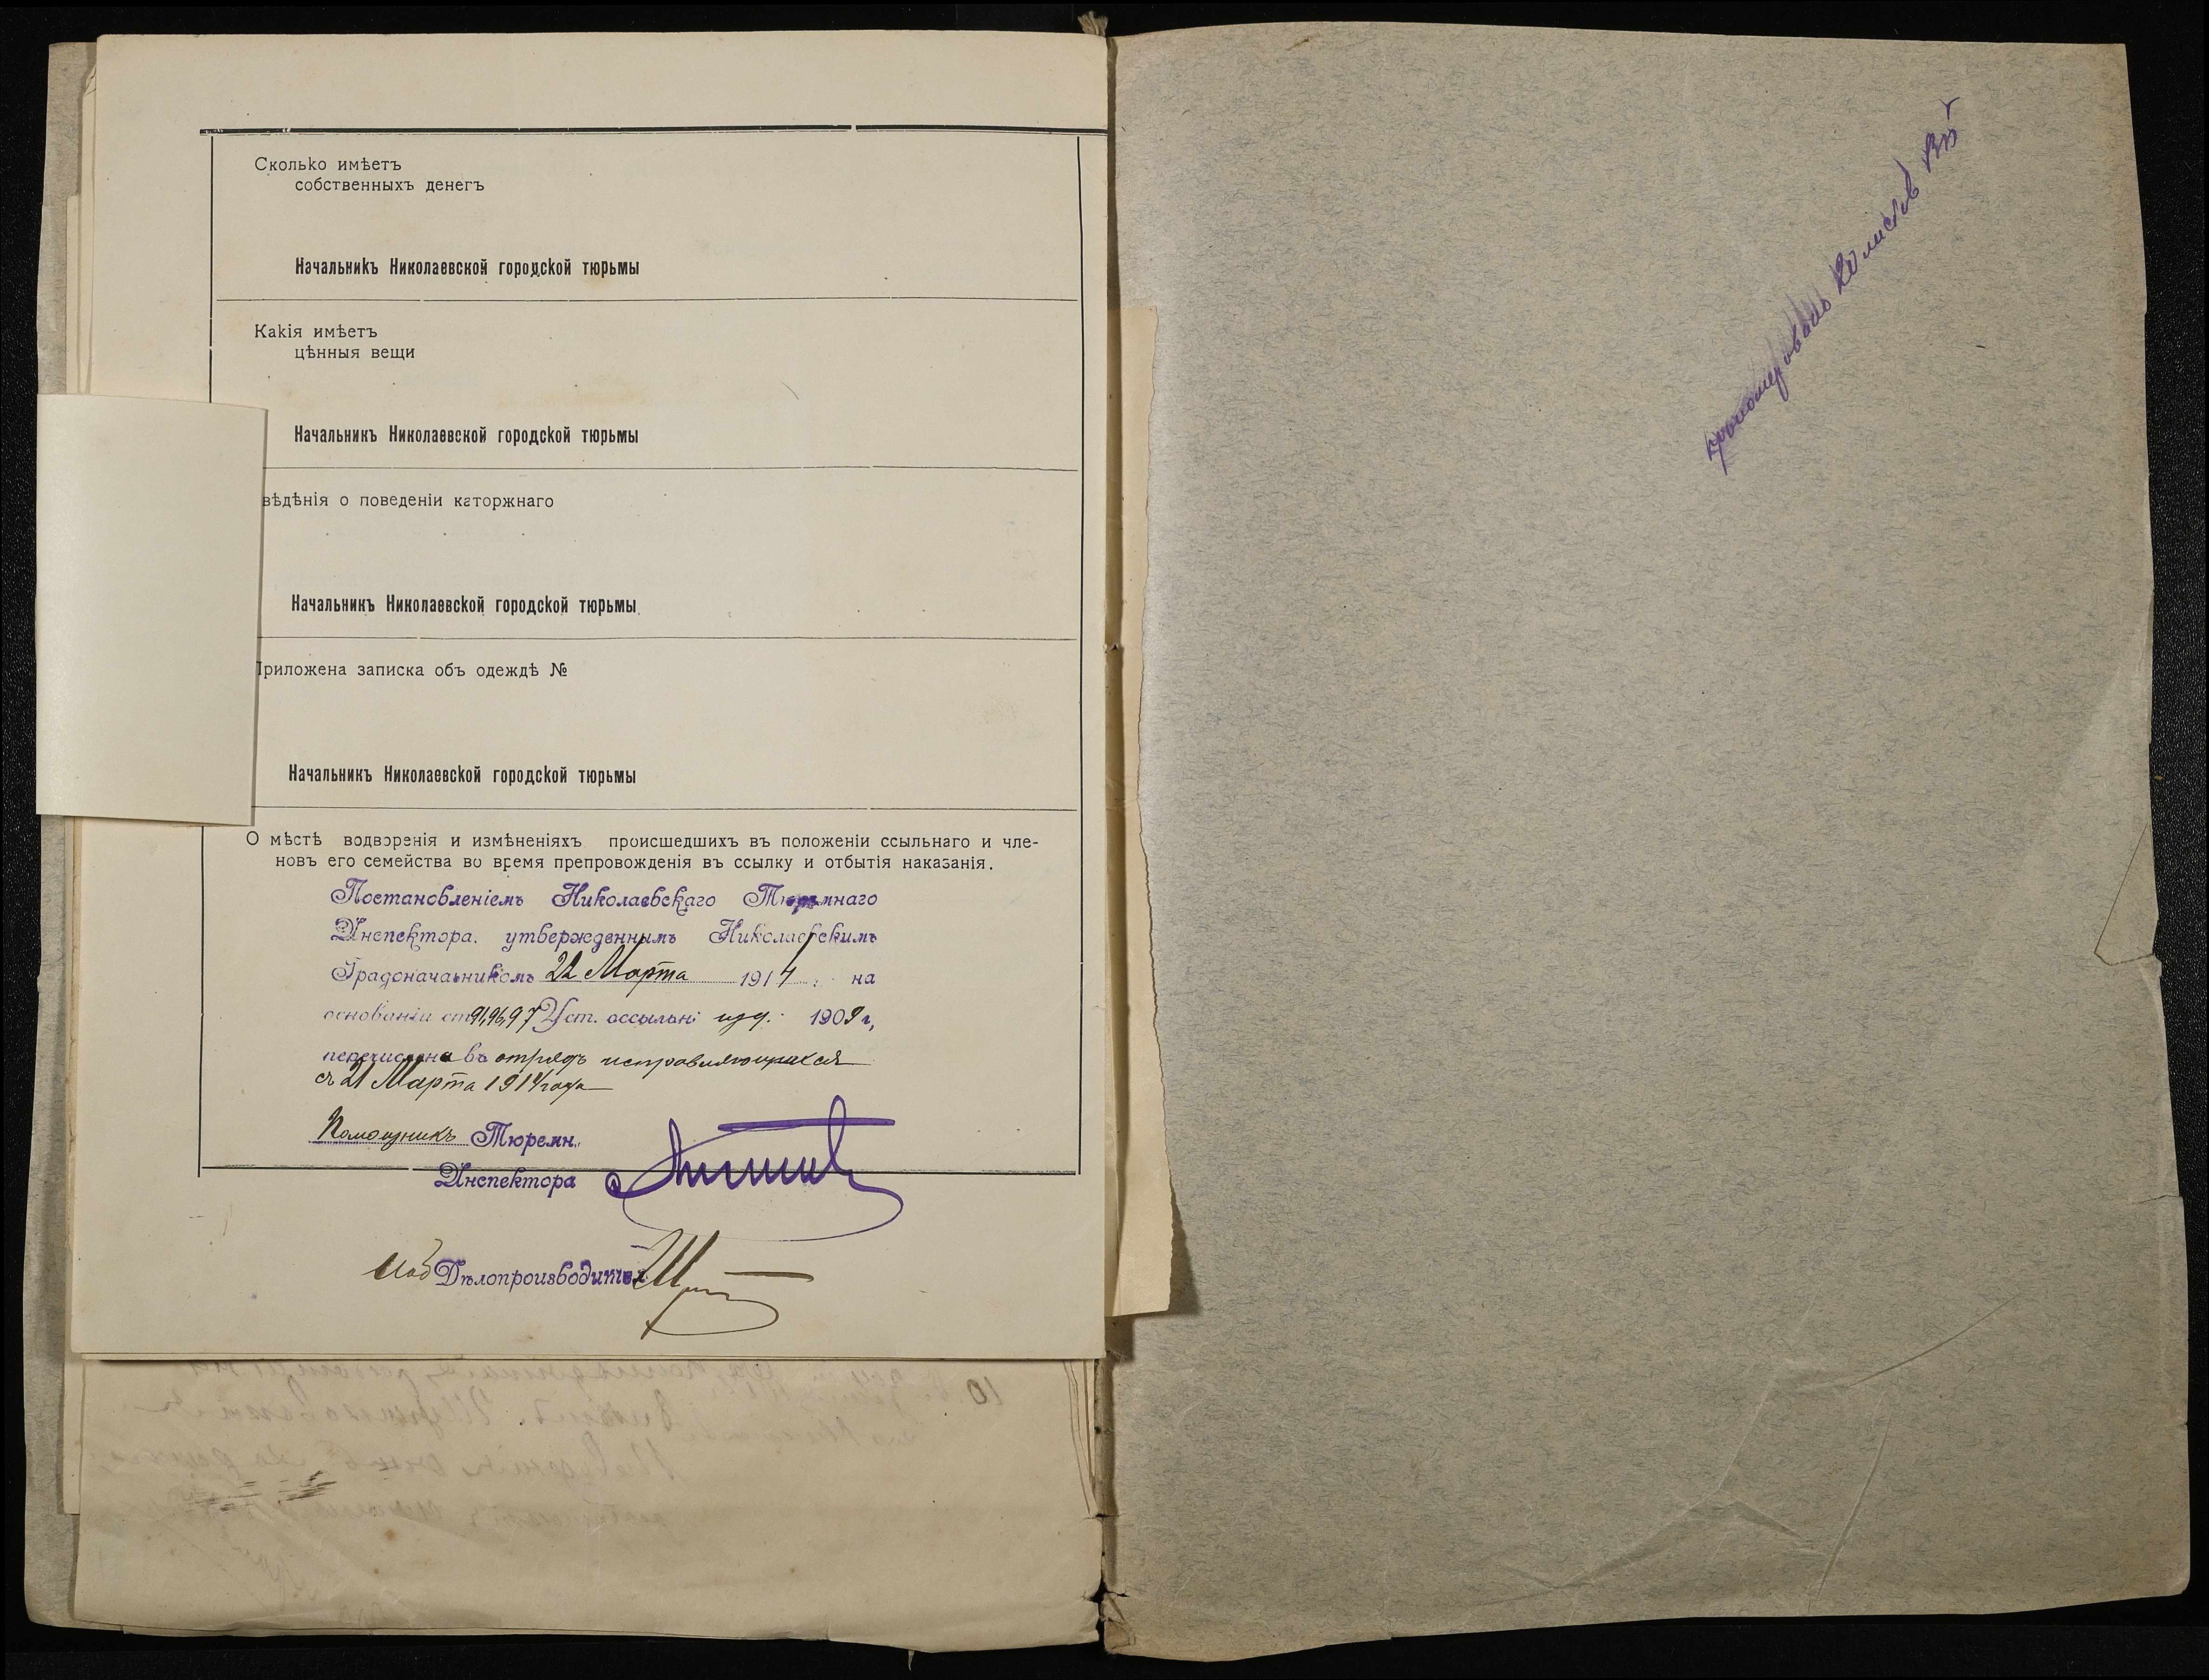 Сколько имѣетъ
собственныхъ денегъ
Начальникъ Николаевской городской тюрьмы
Какія имѣетъ
цѣнныя вещи
Начальникъ Николаевской городской тюрьмы
вѣдѣнія о поведеніи каторжнаго
Начальникъ Николаевской городской тюрьмы
Приложена записка объ одеждѣ №
Начальникъ Николаевской городской тюрьмы
О мѣстѣ водворенія и измѣненіяхъ происшедшихъ въ положеніи ссыльнаго и чле-
новъ его семейства во время препровожденія въ ссылку и отбытія наказанія.
Постановленіемъ Николаевскаго Тюремнаго
Инспектора, утвержденнымъ Николаевскимъ
Градоначальникомъ 22 Марта 1914 г. на
основаніи ст 91,96,97 Уст. о ссыльн: изд. 1909 г,
перечислена въ отрядъ исправляющихся
съ 21 Марта 1914 года
Помощникъ Тюремн.
Инспектора
Иоб Дѣлопроизводителя
10
пронумеровано 20 листов